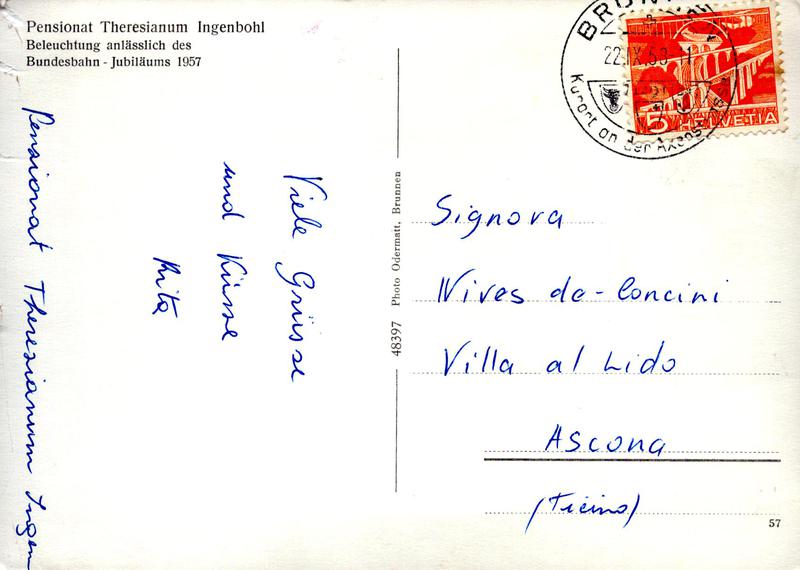 Pensionat Theresianum Ingenbohl
Beleuchtung anlässlich des
Bundesbahn - Jubiläums 1957
Pensionat Theresianum Ingen
Viele Grüsse
und Küsse
Rita
48397 Photo Odermatt, Brunnen
22.IX.58-11
Kurort an der Axenstr
5 HELVETIA
Signora
Nives de-Concini
Villa al Lido
Ascona
(Ticino)
57